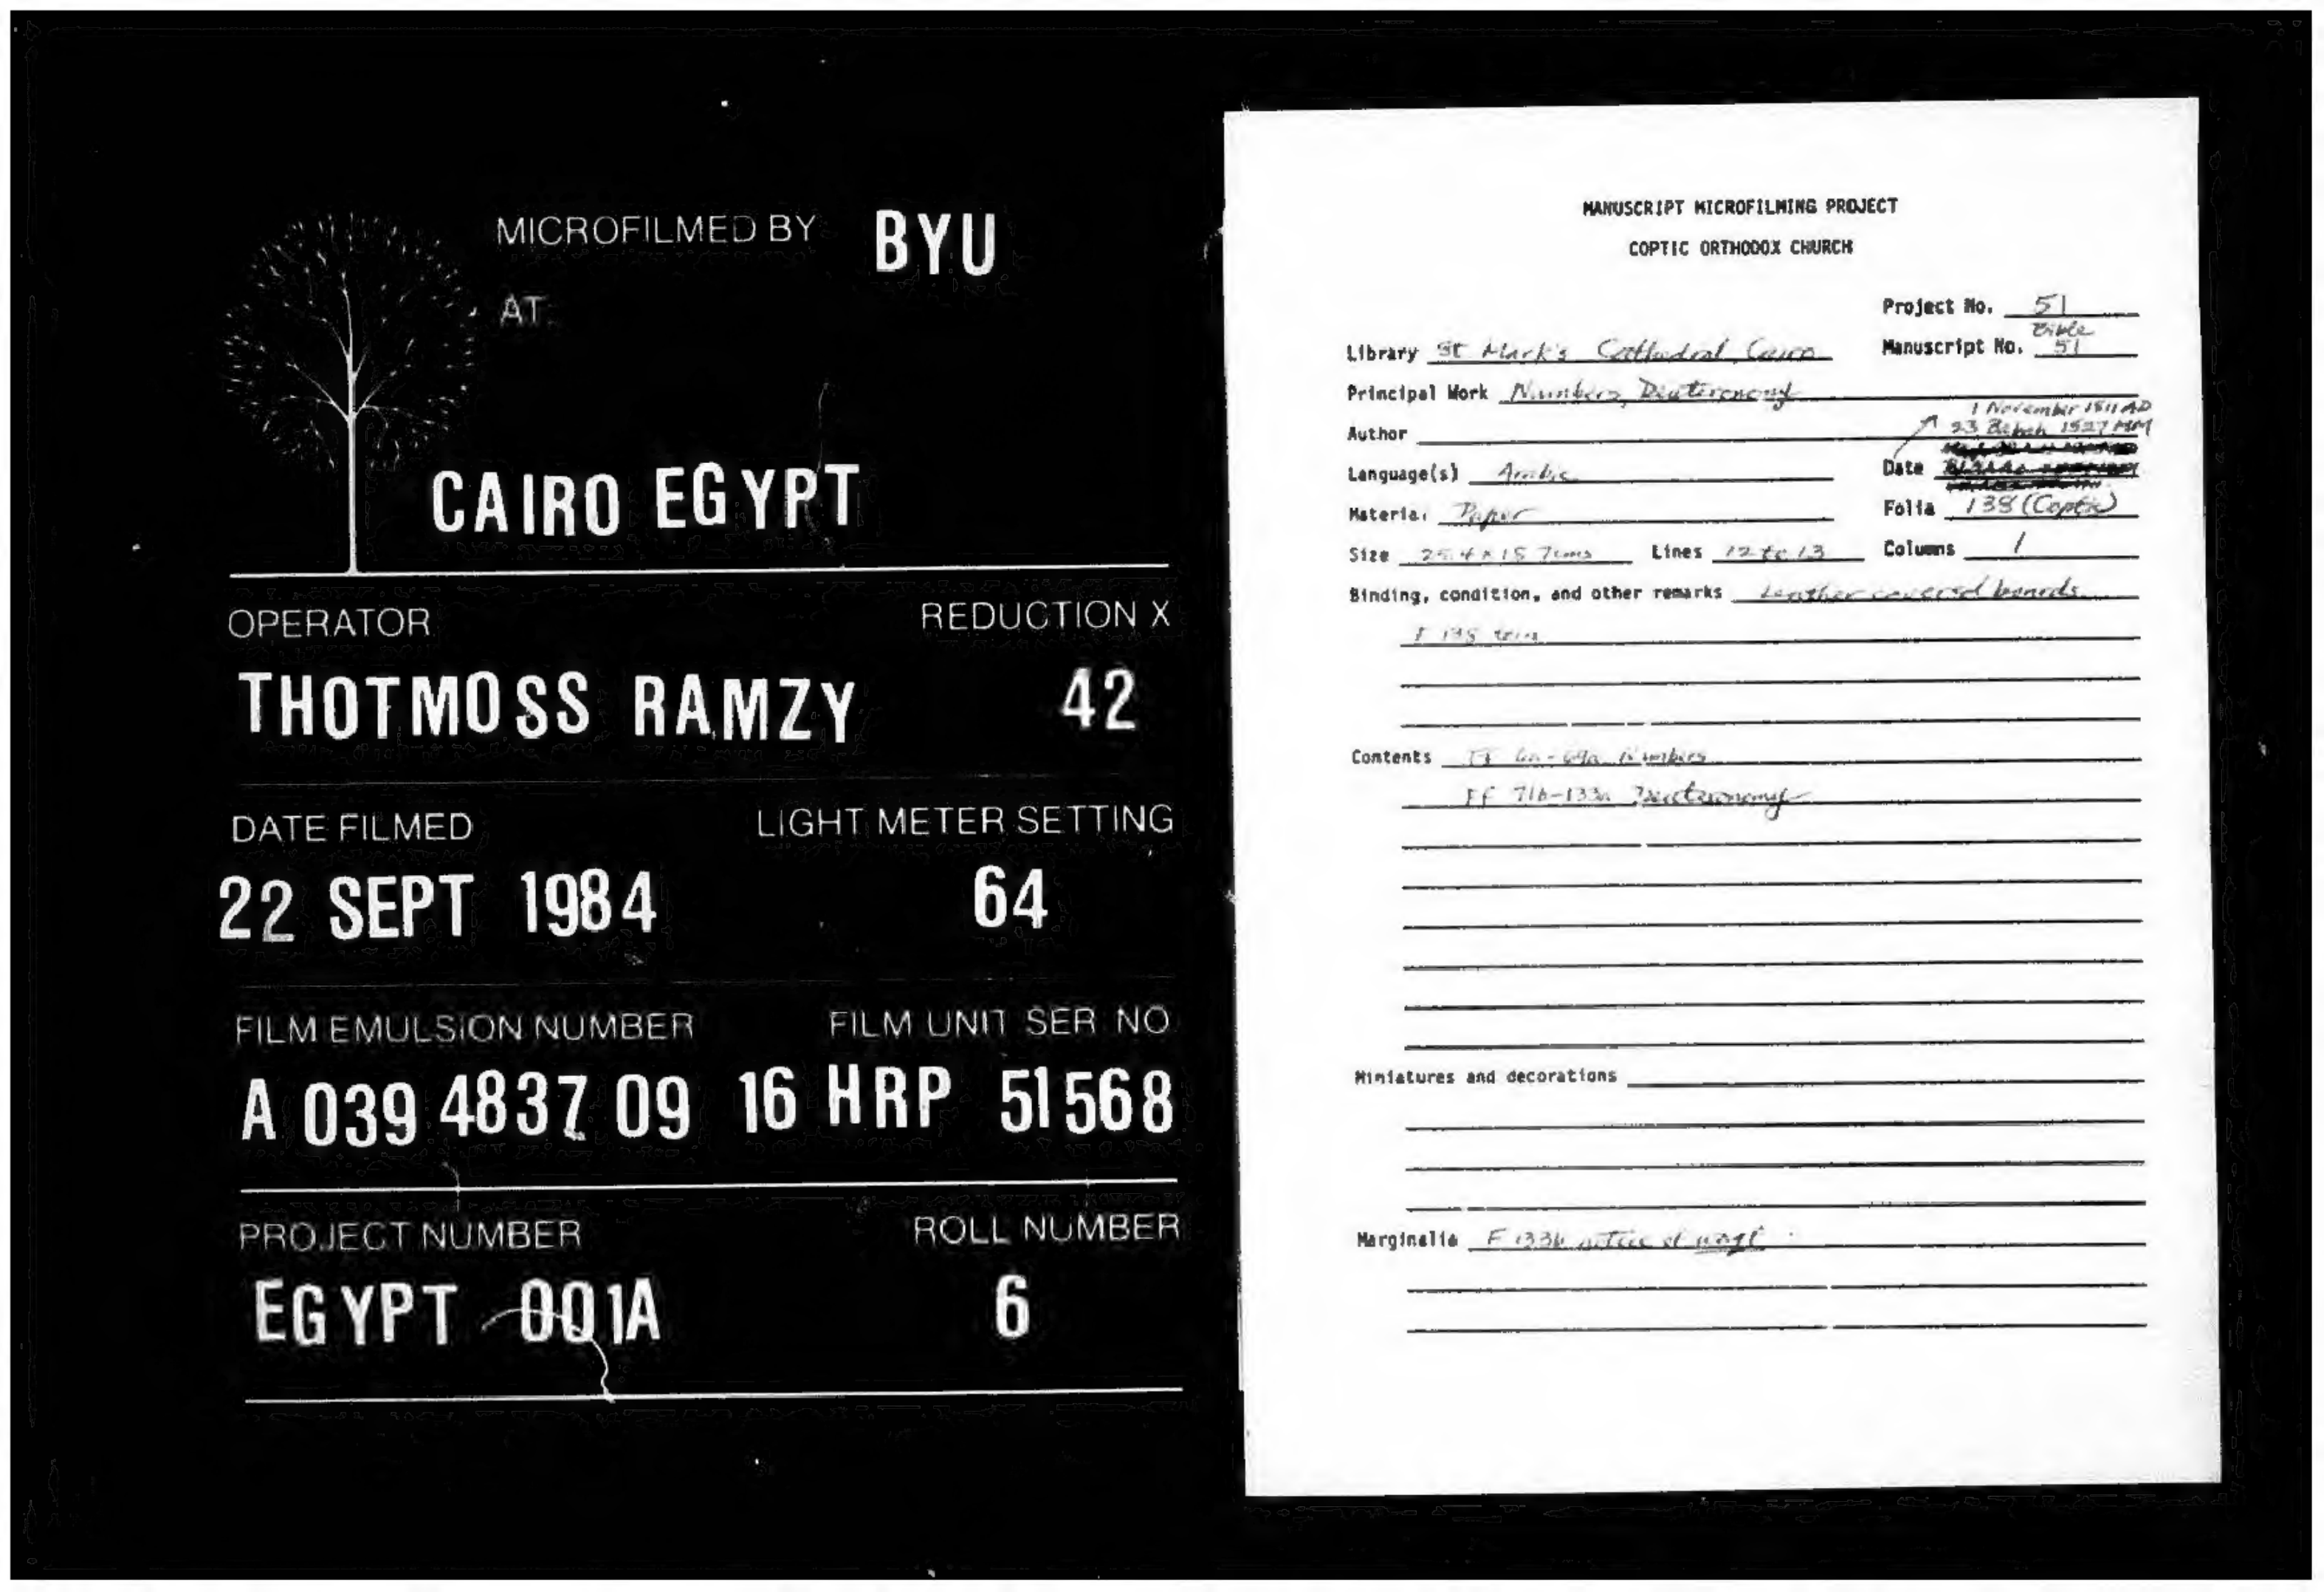 MICROFILMED BY BYU
AT
CAIRO EGYPT
OPERATOR REDUCTION X
THOTMOSS RAMZY 42
DATE FILMED LIGHT METER SETTING
22 SEPT 1984 64
FILM EMULSION NUMBER FILM UNIT SER NO
A 039 4837 09 16 HRP 51568
PROJECT NUMBER ROLL NUMBER
EGYPT 001A 6
MANUSCRIPT MICROFILMING PROJECT
COPTIC ORTHODOX CHURCH
Project No. 51
Bible
Library St Mark's Cathedral, Cairo Manuscript No. 51
Principal Work Numbers, Deuteronomy
1 November 1811 AD
Author 23 Babah 1527 AM
Language(s) Arabic Date
Material Paper Folia 138 (Coptic)
Size 25.4 x 18.7 cms Lines 12 to 13 Columns 1
Binding, condition, and other remarks Leather covered boards
F 138 torn
Contents FF 6a-69a Numbers
FF 71b-133a Deuteronomy
Miniatures and decorations
Marginalia F 133b notice of waqf